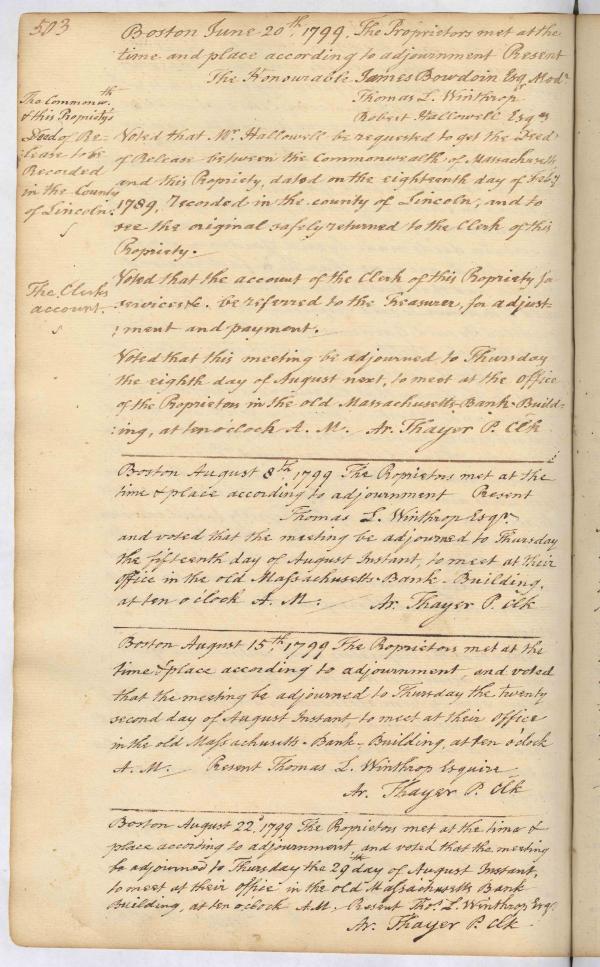 503
Boston June 20th, 1799. The Proprietors met at the
time and place according to adjournment Present
The Honourable James Bowdoin Esqr Modr
Thomas L. Winthrop
Robert Hallowell Esqrs
The Commonwth
& this Propriety's
Deed of Re-
lease to be
Recorded
in the County
of Lincoln.
Voted that Mr. Hallowell be requested to get the Deed
of Release between the Commonwealth of Massachusetts
and this Propriety, dated on the eighteenth day of Feby
1789, recorded in the county of Lincoln, and to
see the original safely returned to the Clerk of this
Propriety.
The Clerks
account.
Voted that the account of the Clerk of this Propriety for
services &c. be referred to the Treasurer, for adjust-
:ment and payment.
Voted that this meeting be adjourned to Thursday
the eighth day of August next, to meet at the office
of the Proprietors in the old Massachusetts-Bank-Build-
:ing, at ten o'clock A. M. Ar. Thayer P. Clk
Boston August 8th, 1799 The Proprietors met at the
time & place according to adjournment Present
Thomas L. Winthrop Esqr.
and voted that the meeting be adjourned to Thursday
the fifteenth day of August Instant, to meet at their
office in the old Massachusetts-Bank-Building,
at ten o'clock A. M. Ar. Thayer P. Clk
Boston August 15th, 1799 The Proprietors met at the
time & place according to adjournment, and voted
that the meeting be adjourned to Thursday the twenty
second day of August Instant to meet at their office
in the old Massachusetts-Bank-Building, at ten o'clock
A. M. Present Thomas L. Winthrop Esquire
Ar. Thayer P. Clk
Boston August 22d, 1799 The Proprietors met at the time &
place according to adjournment, and voted that the meeting
be adjourned to Thursday the 29th day of August Instant,
to meet at their office in the old Massachusetts Bank
Building, at ten o'clock A.M. Present Thos. L. Winthrop Esqr.
Ar. Thayer P. Clk